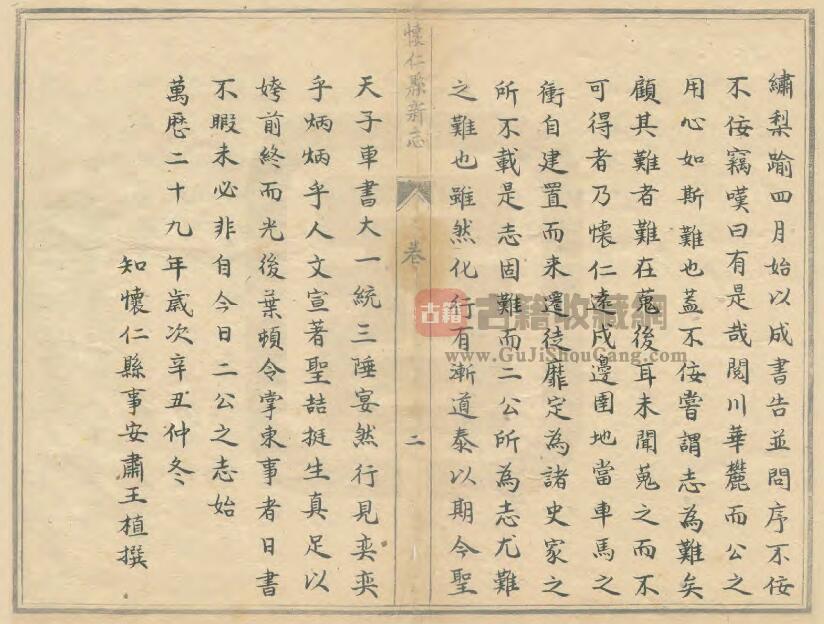 繡梨踰四月始以成書告並問序不佞
不佞竊嘆曰有是哉閱川華麓而公之
用心如斯難也蓋不佞嘗謂志為難矣
顧其難者難在蒐後耳未聞蒐之而不
可得者乃懷仁遠戍邊圉地當車馬之
衝自建置而來遷徒靡定為諸史家之
所不載是志固難而二公所為志尤難
之難也雖然化行有漸道泰以期今聖
懷仁縣新志
卷
二
天子車書大一統三陲宴然行見奕奕
乎炳炳乎人文宣著聖喆挺生真足以
姱前終而光後葉頓令掌東事者日書
不暇未必非自今日二公之志始
萬歷二十九年歲次辛丑仲冬
知懷仁縣事安肅王植撰
古籍
古籍收藏網
www.GuJiShouCang.com